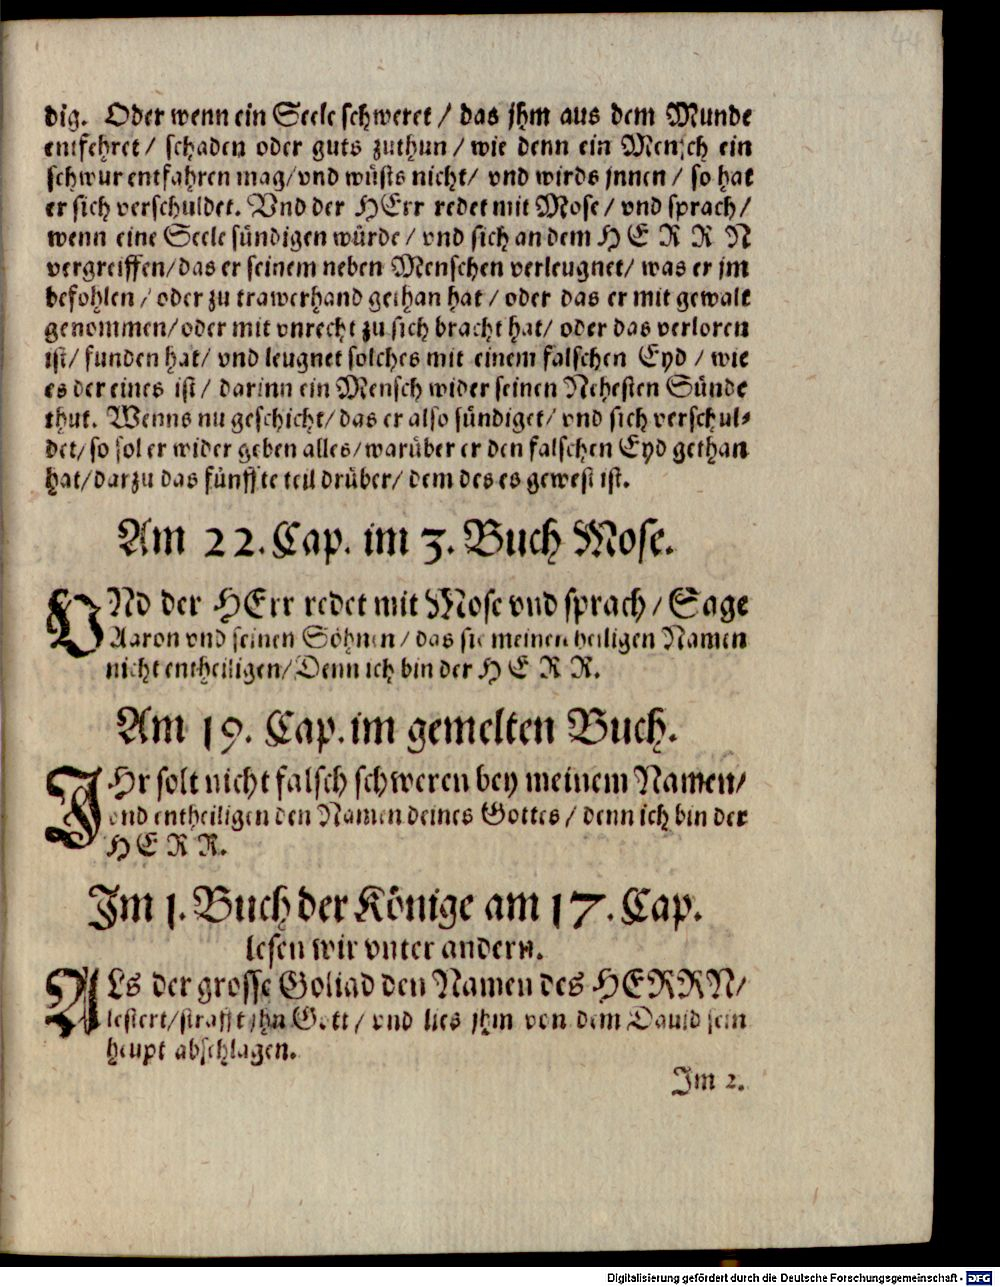 44
dig. Oder wenn ein Seele schweret / das jhm aus dem Munde
entfehret / schaden oder guts zuthun / wie denn ein Mensch ein
schwur entfahren mag/ vnd wüsts nicht/ vnd wirds jnnen / so hat
er sich verschuldet. Vnd der HErr redet mit Mose / vnd sprach /
wenn eine Seele sündigen würde / vnd sich an dem H E R R N
vergreiffen/ das er seinem neben Menschen verleugnet/ was er jm
befohlen / oder zu trawerhand gethan hat / oder das er mit gewalt
genommen/ oder mit vnrecht zu sich bracht hat/ oder das verloren
ist/ funden hat/ vnd leugnet solches mit einem falschen Eyd / wie
es der eines ist / darinn ein Mensch wider seinen Nehesten Sünde
thut. Wenns nu geschicht/ das er also sündiget/ vnd sich verschul-
det/ so sol er wider geben alles/ warüber er den falschen Eyd gethan
hat/ darzu das fünffte teil drüber/ dem des es gewest ist.
Am 22. Cap. im 3. Buch Mose.
VNd der HErr redet mit Mose vnd sprach / Sage
Aaron vnd seinen Söhnen / das sie meinen heiligen Namen
nicht entheiligen/ Denn ich bin der H E R R.
Am 19. Cap. im gemelten Buch.
IHr solt nicht falsch schweren bey meinem Namen/
vnd entheiligen den Namen deines Gottes / denn ich bin der
H E R R.
Im 1. Buch der Könige am 17. Cap.
lesen wir vnter andern.
ALs der grosse Goliad den Namen des HERRN/
lestert/ strafft jhn Gott / vnd lies jhm von dem Dauid sein
heupt abschlagen.
Im 2.
Digitalisierung gefördert durch die Deutsche Forschungsgemeinschaft - DFG